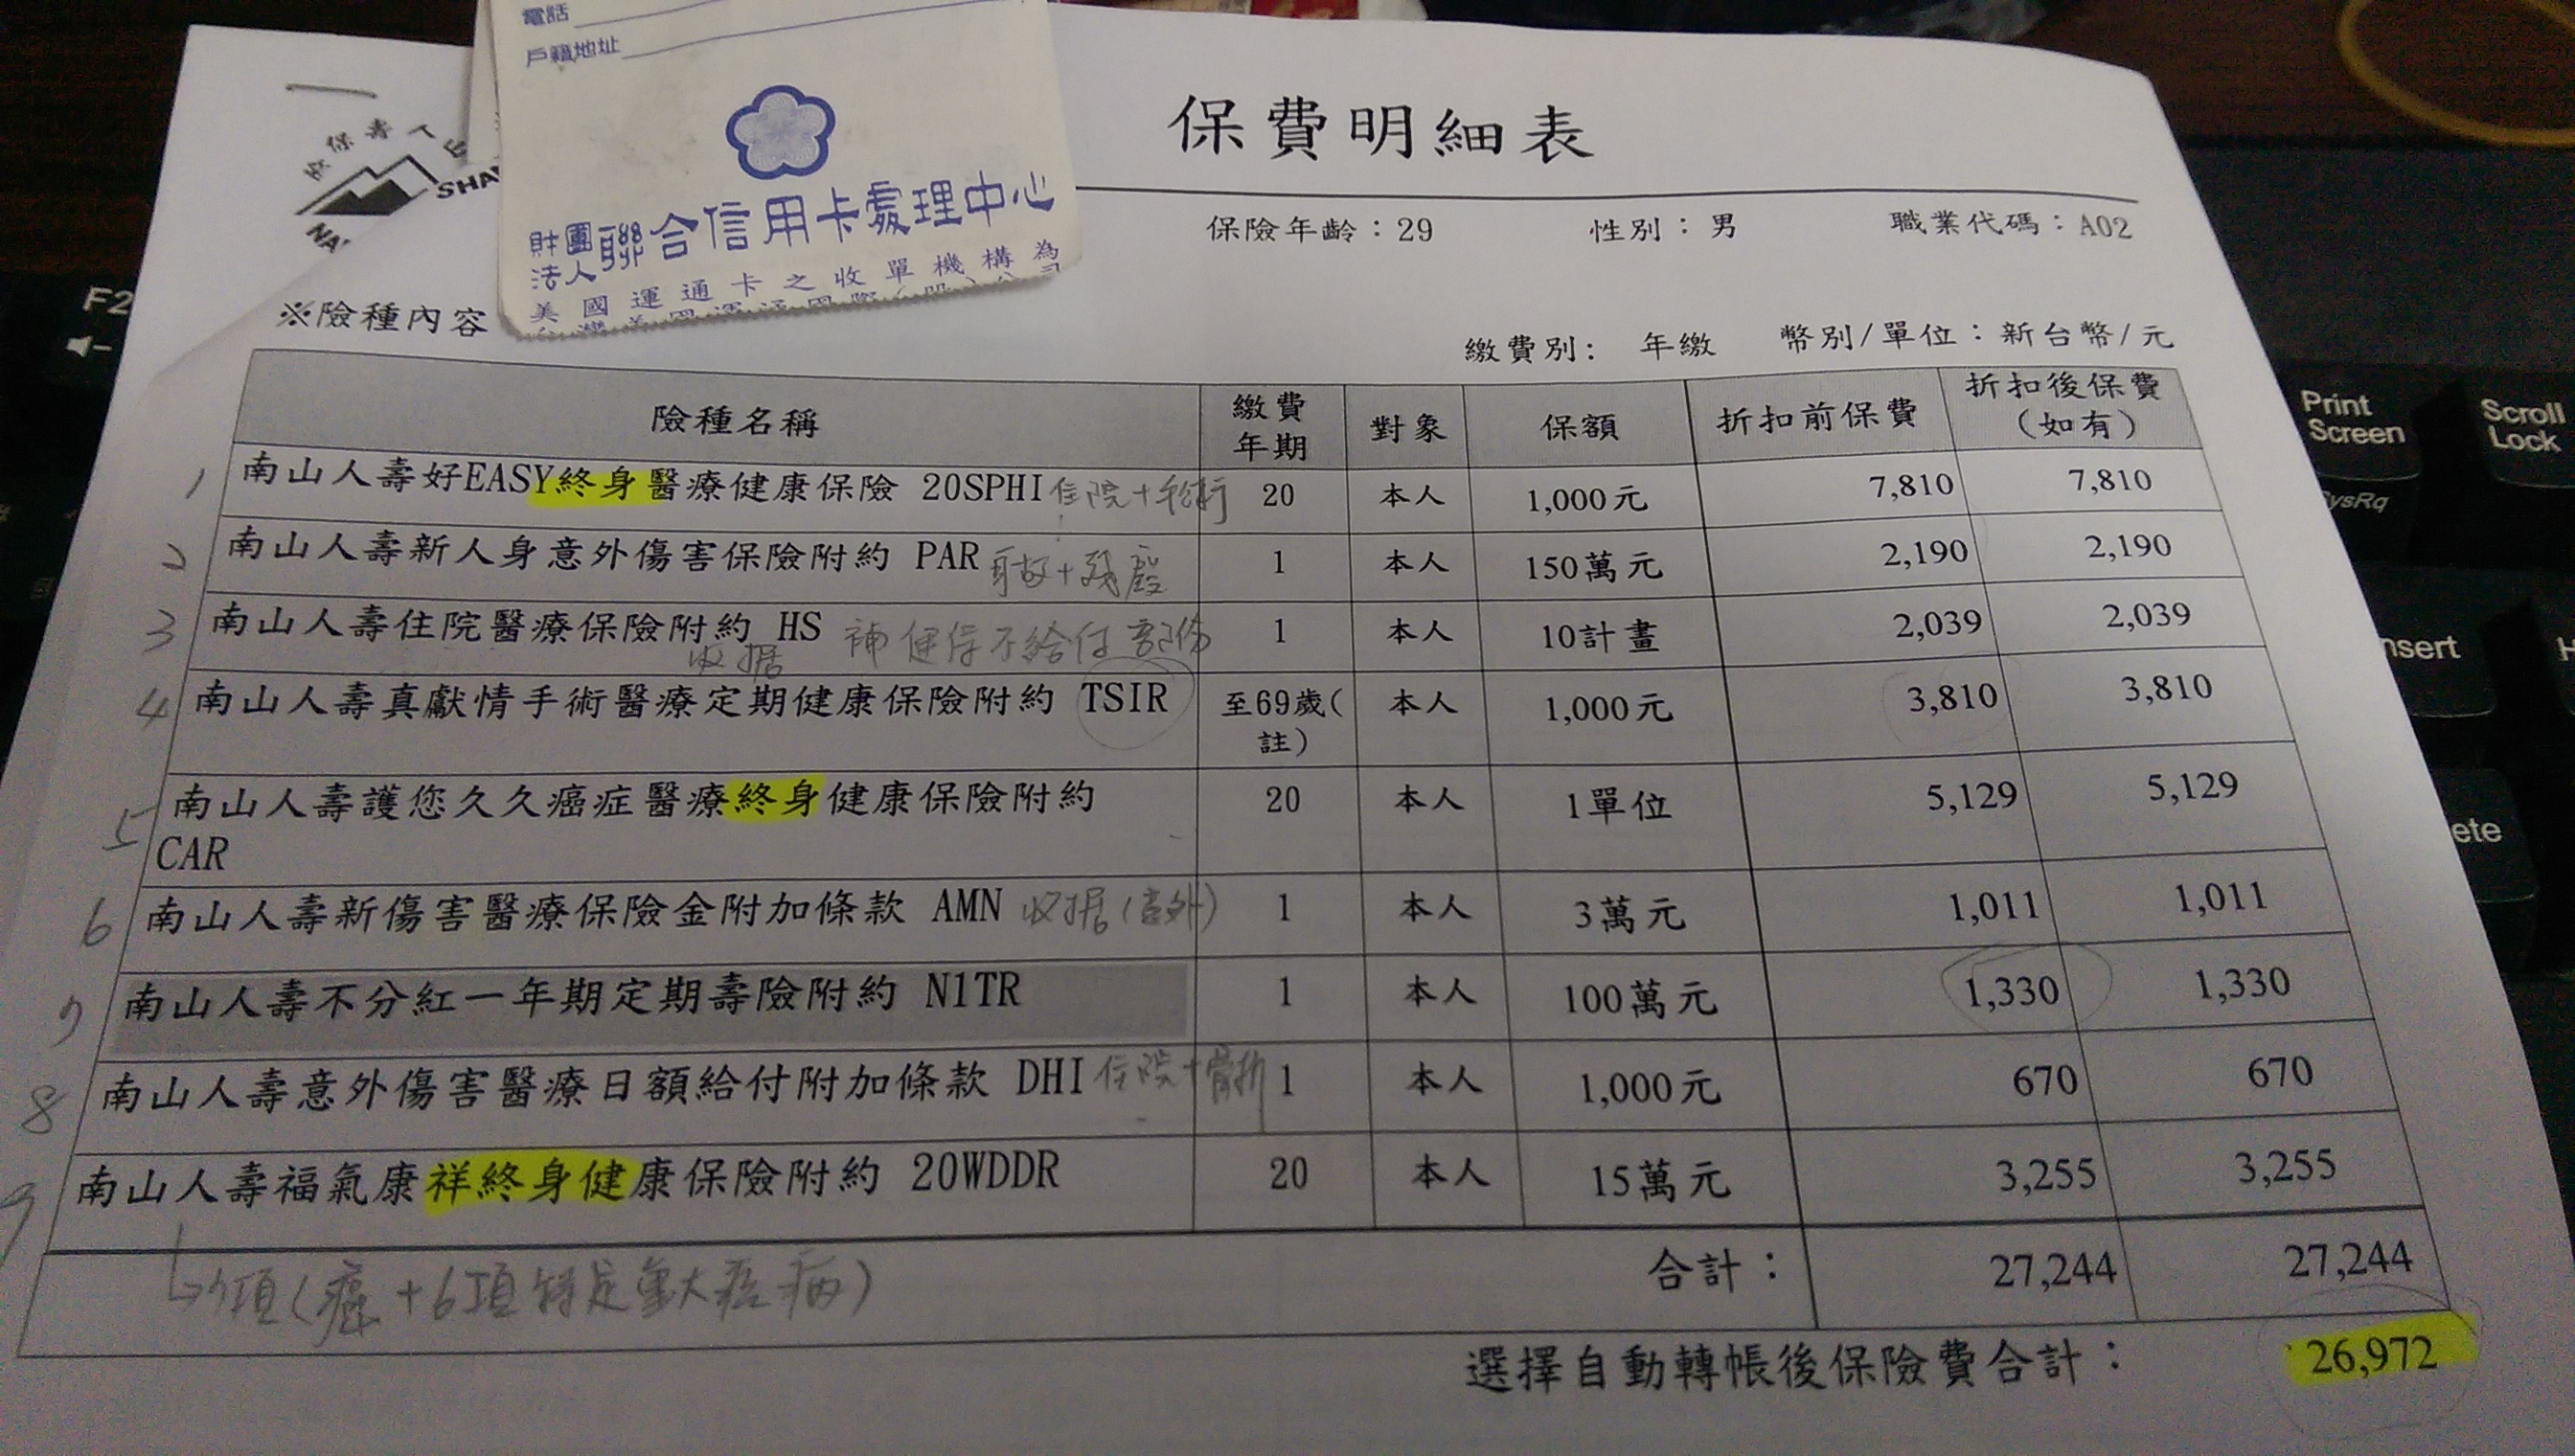 電話
戶籍地址
財團法人聯合信用卡處理中心
美國運通卡之收單機構為
保費明細表
SHA
NA
保險年齡：29 性別：男 職業代碼：A02
※險種內容
繳費別： 年繳 幣別/單位：新台幣/元
險種名稱 繳費年期 對象 保額 折扣前保費 折扣後保費（如有）
1 南山人壽好EASY終身醫療健康保險 20SPHI 住院+手術 20 本人 1,000元 7,810 7,810
2 南山人壽新人身意外傷害保險附約 PAR 身故+殘廢 1 本人 150萬元 2,190 2,190
3 南山人壽住院醫療保險附約 HS 收据 補健保不給付部份 1 本人 10計畫 2,039 2,039
4 南山人壽真獻情手術醫療定期健康保險附約 TSIR 至69歲(註) 本人 1,000元 3,810 3,810
5 南山人壽護您久久癌症醫療終身健康保險附約 CAR 20 本人 1單位 5,129 5,129
6 南山人壽新傷害醫療保險金附加條款 AMN 收据(意外) 1 本人 3萬元 1,011 1,011
7 南山人壽不分紅一年期定期壽險附約 N1TR 1 本人 100萬元 1,330 1,330
8 南山人壽意外傷害醫療日額給付附加條款 DHI 住院+骨折 1 本人 1,000元 670 670
9 南山人壽福氣康祥終身健康保險附約 20WDDR 20 本人 15萬元 3,255 3,255
7項(癌+6項特定重大疾病) 合計： 27,244 27,244
選擇自動轉帳後保險費合計： 26,972
F2
Print Screen
SysRq
Scroll Lock
nsert
H
ete